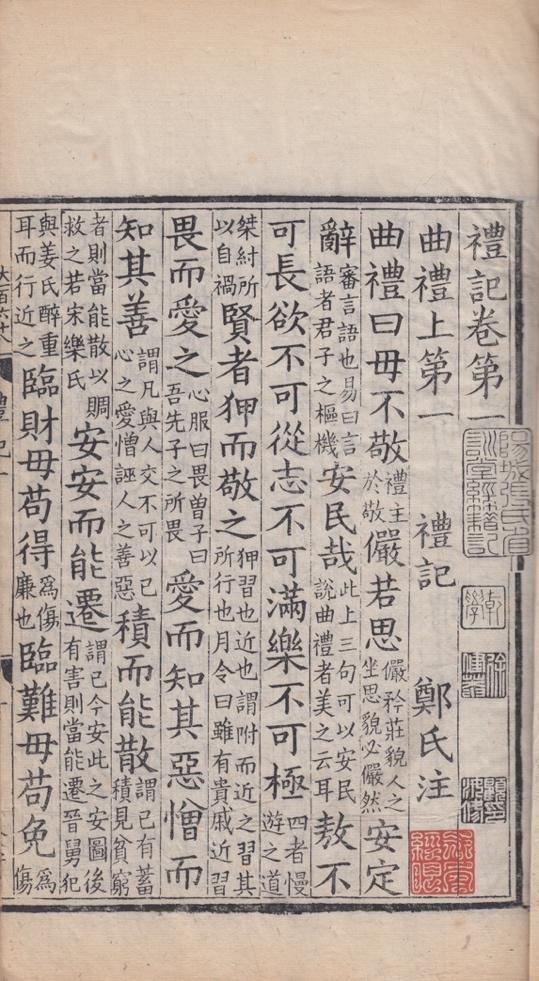 禮記卷第一
陽城張氏省
訓堂經籍記
乾學
徐健菴
曲禮上第一 禮記 鄭氏注
曲禮曰毋不敬禮主於敬儼若思儼矜莊貌人之坐思貌必儼然安定
辭審言語也易曰言語者君子之樞機安民哉此上三句可以安民說曲禮者美之云耳敖不
可長欲不可從志不可滿樂不可極四者慢遊之道
桀紂所以自禍賢者狎而敬之狎習也近也謂附而近之習其所行也月令曰雖有貴戚近習
畏而愛之心服曰畏曾子曰吾先子之所畏愛而知其惡憎而
知其善謂凡與人交不可以己心之愛憎誣人之善惡積而能散謂己有蓄積見貧窮
者則當能散以賙救之若宋樂氏安安而能遷謂己今安此之安圖後有害則當能遷晉舅犯
與姜氏醉重耳而行近之臨財毋苟得為傷廉也臨難毋苟免為傷